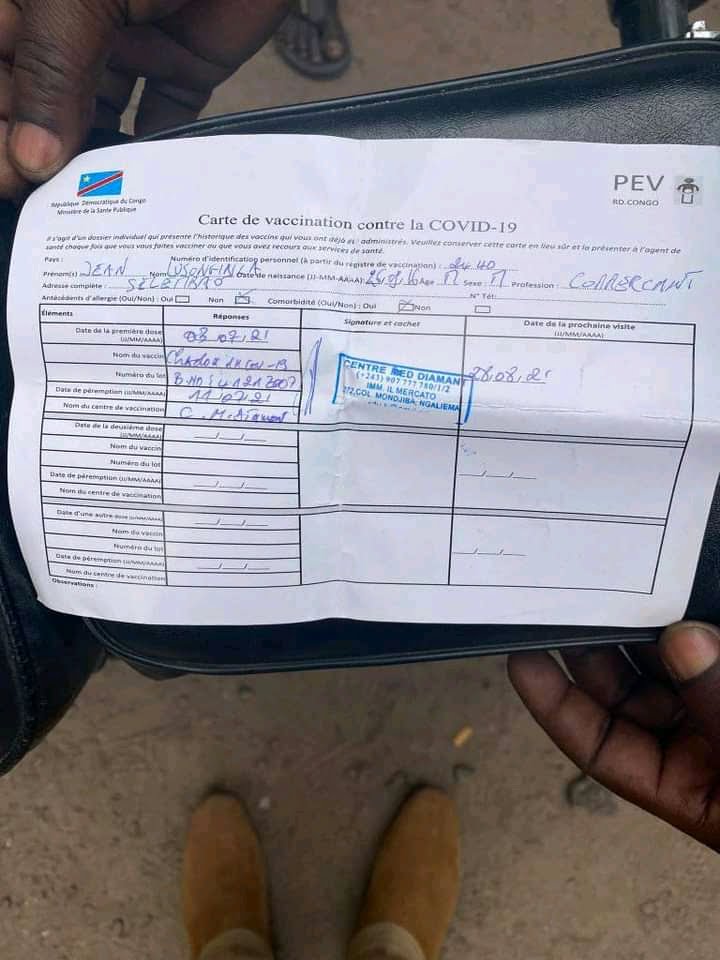 République Démocratique du Congo
Ministère de la Santé Publique
PEV
RD.CONGO
Carte de vaccination contre la COVID-19
Il s'agit d'un dossier individuel qui présente l'historique des vaccins qui vous ont déjà été administrés. Veuillez conserver cette carte en lieu sûr et la présenter à l'agent de
santé chaque fois que vous vous faites vacciner ou que vous avez recours aux services de santé.
Pays : Numéro d'identification personnel (à partir du registre de vaccination) : 2440
Prénom(s) JEAN Nom LUSONGINGA Date de naissance (JJ-MM-AAAA): Age Sexe : M Profession : COMMERCANT
Adresse complète : SELEMBAO N° Tél:
Antécédents d'allergie (Oui/Non) : Oui Non Comorbidité (Oui/Non) : Oui Non
Éléments Réponses Signature et cachet Date de la prochaine visite
(JJ/MM/AAAA)
Date de la première dose
(JJ/MM/AAAA) 03.07.21 28.08.21
Nom du vaccin
Numéro du lot
Date de péremption (JJ/MM/AAAA) 11.07.21
Nom du centre de vaccination C.M.Diamant
CENTRE MED DIAMANT
(+243) 907 777 780/1/2
IMM. IL MERCATO
272,COL. MONDJIBA, NGALIEMA
Date de la deuxième dose
(JJ/MM/AAAA) __/__/__
Nom du vaccin
Numéro du lot
Date de péremption (JJ/MM/AAAA) __/__/__
Nom du centre de vaccination
Date d'une autre dose (JJ/MM/AAAA) __/__/__
Nom du vaccin
Numéro du lot
Date de péremption (JJ/MM/AAAA) __/__/__
Nom du centre de vaccination
Observations :